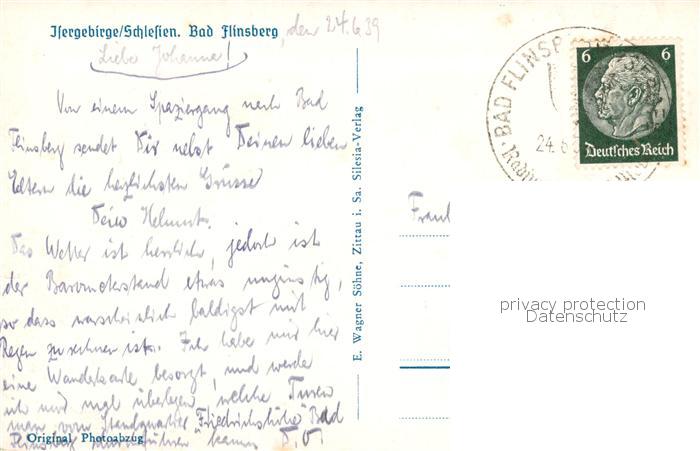 Isergebirge/Schlesien. Bad Flinsberg, den 24.6.39
Liebe Johanna!
Von einem Spaziergang nach Bad
Flinsberg sendet Dir nebst Deinen lieben
Eltern die herzlichsten Grüsse
Dein Helmut.
Das Wetter ist herrlich, jedoch ist
der Barometerstand etwas ungünstig,
so dass warscheinlich baldigst mit
Regen zu rechnen ist. Ich habe mir hier
eine Wanderkarte besorgt, und werde
ich mir mal überlegen, welche Turen
man vom Standquartier "Friedrichshöhe" Bad
Flinsberg durchführen kann. D.O!
Original Photoabzug
E. Wagner Söhne, Zittau i. Sa. Silesia-Verlag
BAD FLINSB
24.6
6 6
Deutsches Reich
Frank
privacy protection
Datenschutz